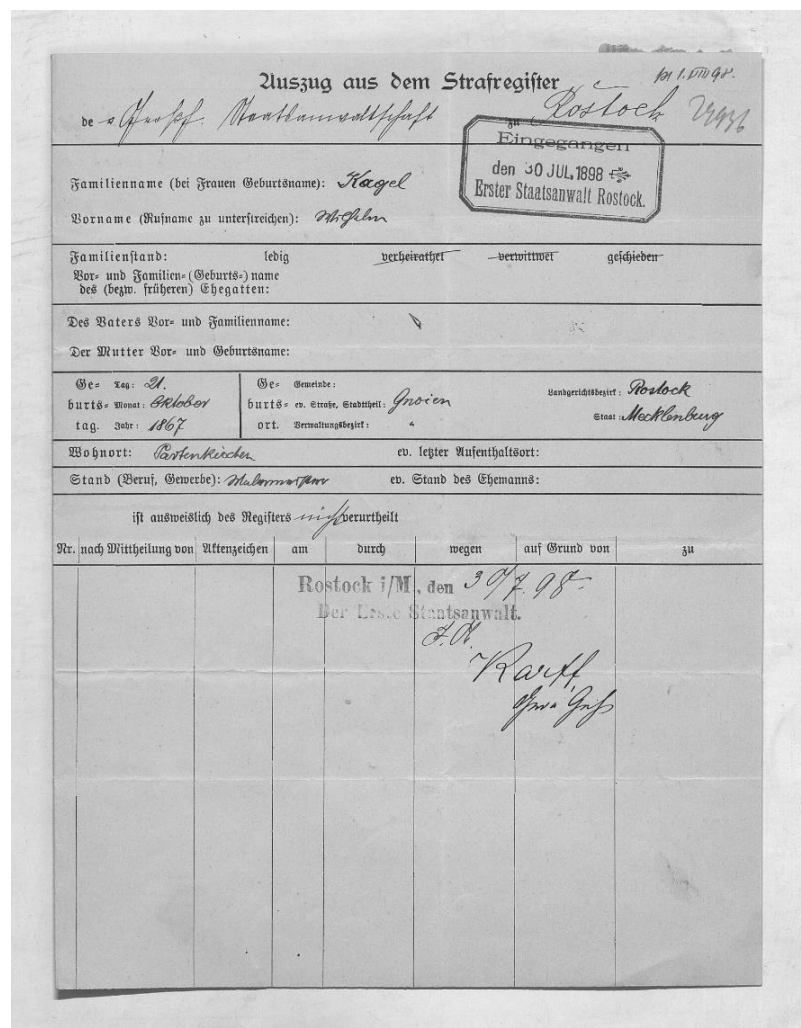 pr 1.VIII 98.
Auszug aus dem Strafregister
de Staatsanwaltschaft zu Rostock
Eingegangen
den 30 JUL. 1898
Erster Staatsanwalt Rostock.
Familienname (bei Frauen Geburtsname): Kagel
Vorname (Rufname zu unterstreichen): Wilhelm
Familienstand: ledig verheirathet verwittwet geschieden
Vor- und Familien-(Geburts-)name
des (bezw. früheren) Ehegatten:
Des Vaters Vor- und Familienname:
Der Mutter Vor- und Geburtsname:
Ge- Tag: 21. Ge- Gemeinde: Landgerichtsbezirk: Rostock
burts- Monat: Oktober burts- ev. Straße, Stadttheil: Gnoien Staat: Mecklenburg
tag. Jahr: 1867 ort. Verwaltungsbezirk: "
Wohnort: Partenkirchen ev. letzter Aufenthaltsort:
Stand (Beruf, Gewerbe): Malermeister ev. Stand des Ehemanns:
ist ausweislich des Registers nicht verurtheilt
Nr. nach Mittheilung von Aktenzeichen am durch wegen auf Grund von zu
Rostock i/M., den 30/7. 98.
Der Erste Staatsanwalt.